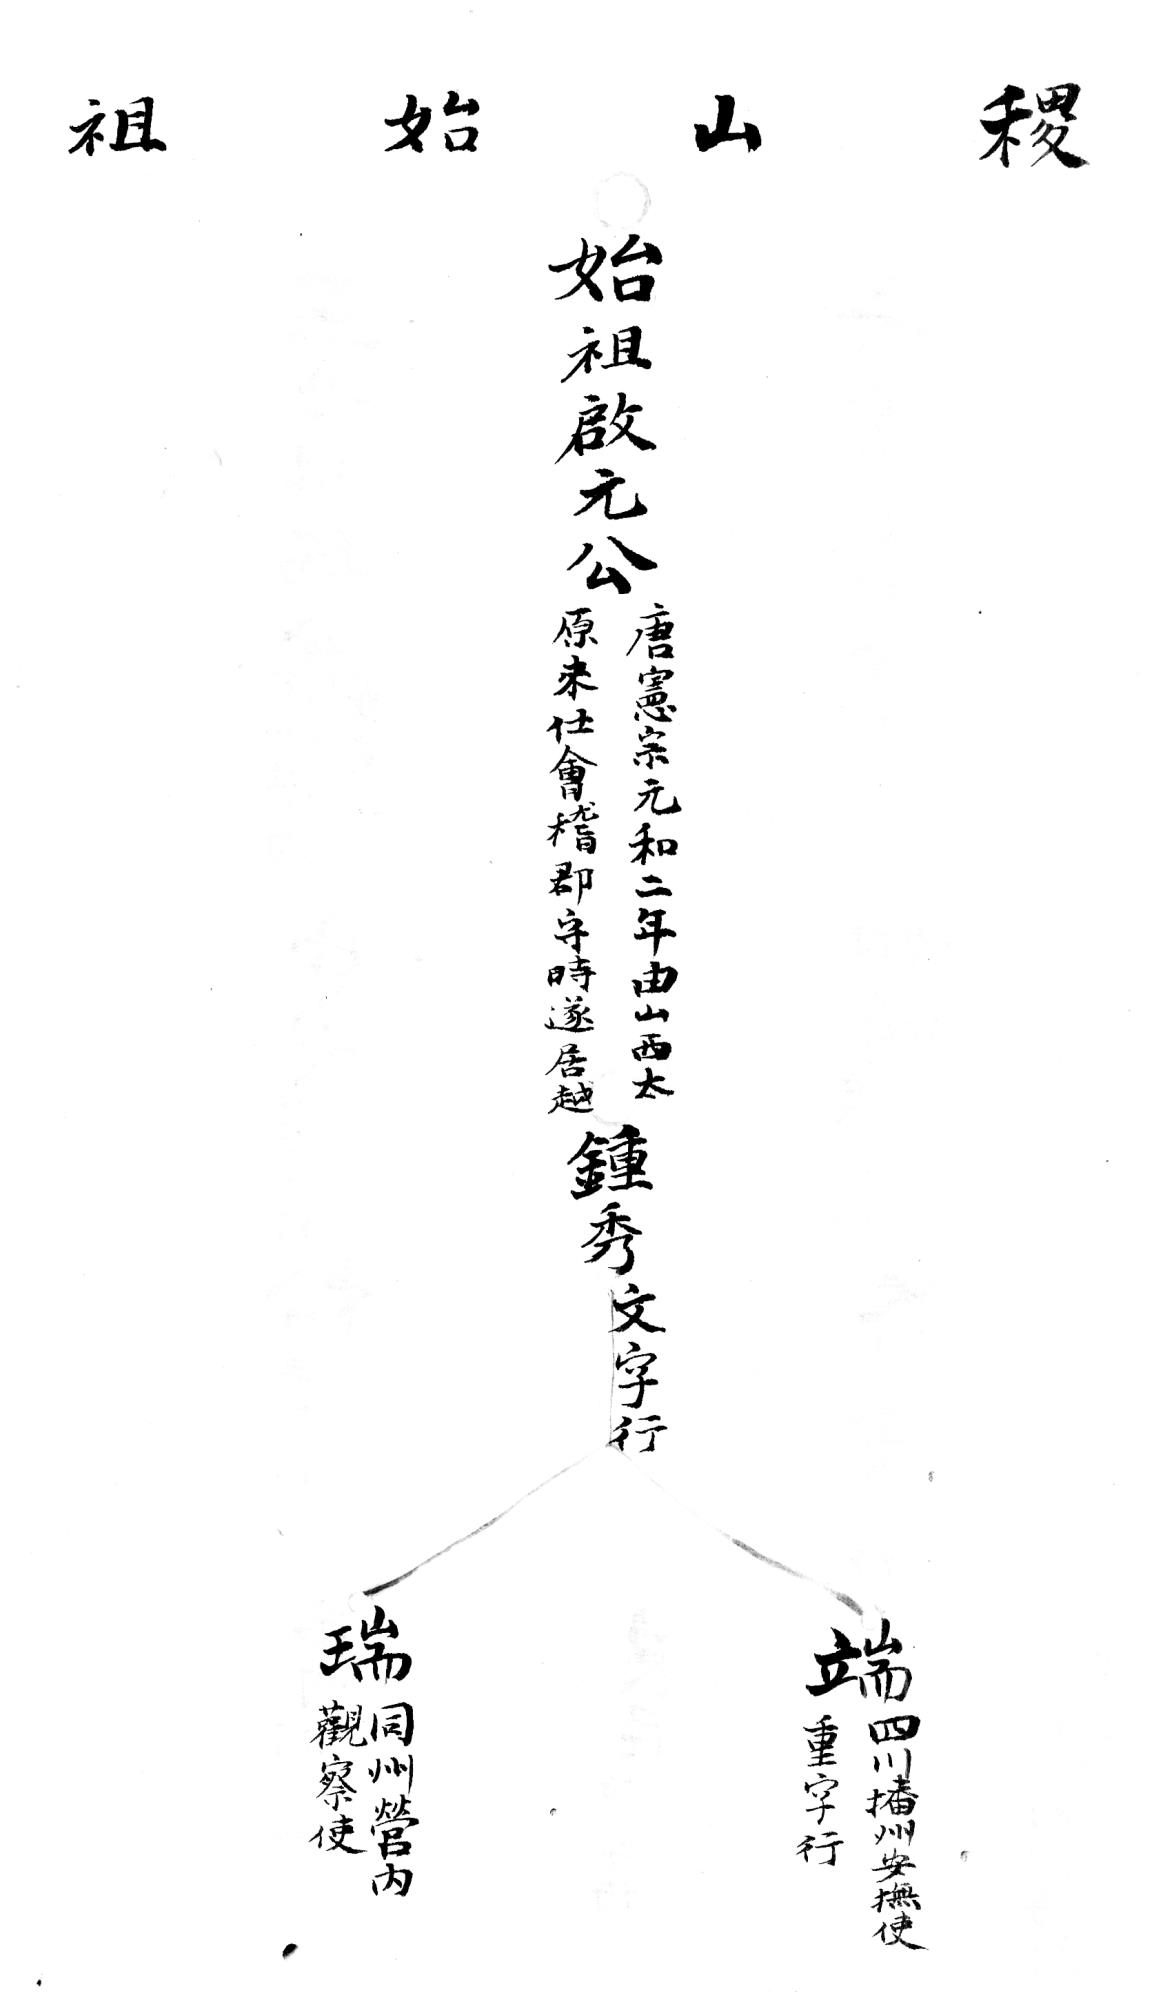 稷山始祖
始祖啟元公
唐憲宗元和二年由山西太
原来仕會稽郡守時遂居越
鍾秀
文字行
端
四川播州安撫使
重字行
瑞
同州營内
觀察使